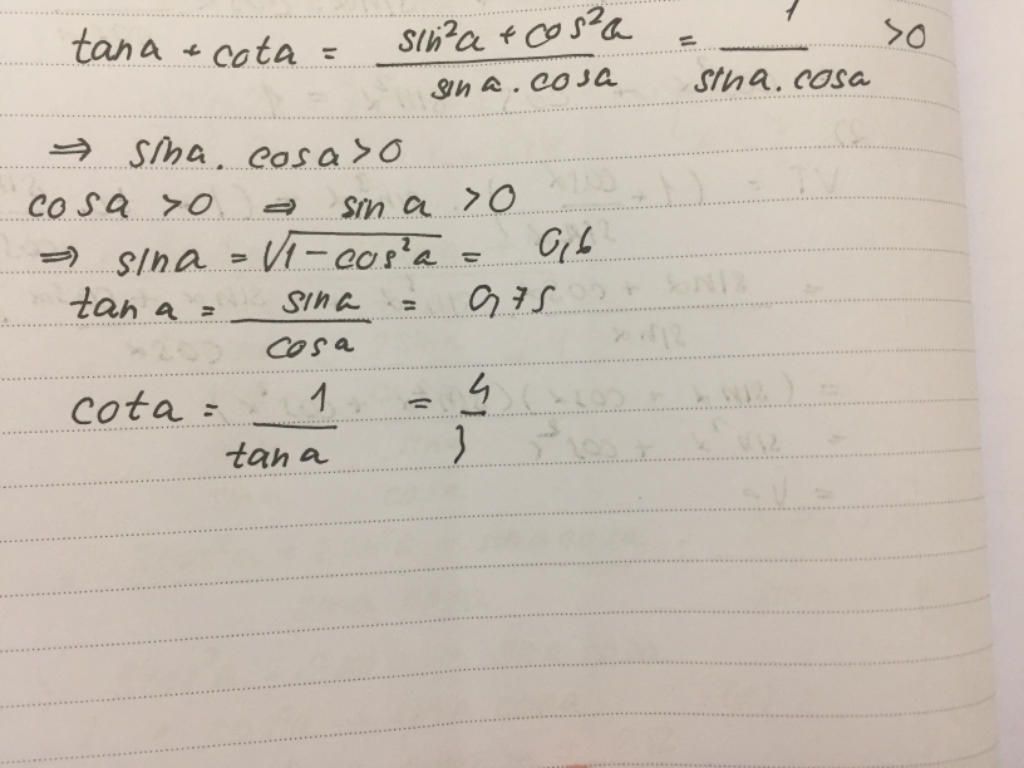 tana + cota = sin²a + cos²a / sina . cosa = 1 / sina . cosa >0
⇒ sina . cosa >0
cosa >0 ⇒ sin a >0
⇒ sina = √1 - cos²a = 0,6
tan a = sina / cosa = 0,75
cota = 1 / tana = 4 / 3